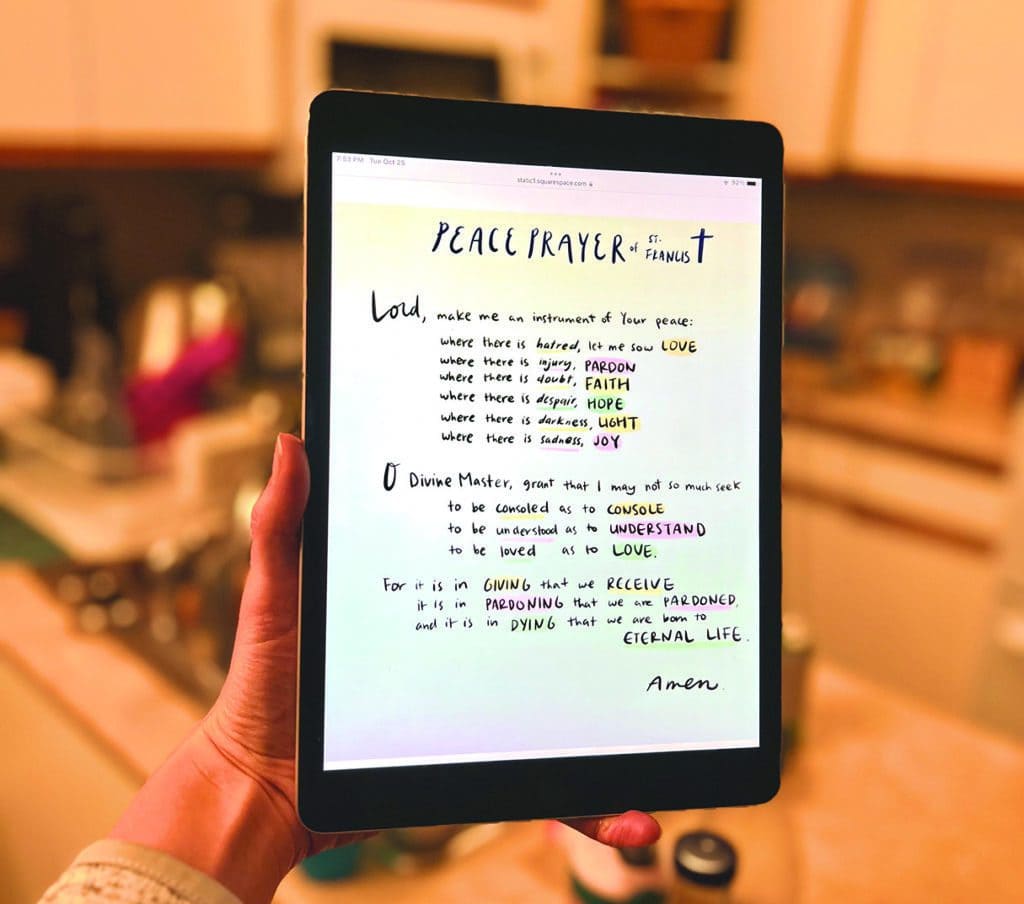 7:53 PM Tue Oct 25
static1.squarespace.com
92%
PEACE PRAYER of ST. FRANCIS
Lord, make me an instrument of Your peace:
where there is hatred, let me sow LOVE
where there is injury, PARDON
where there is doubt, FAITH
where there is despair, HOPE
where there is darkness, LIGHT
where there is sadness, JOY
O Divine Master, grant that I may not so much seek
to be consoled as to CONSOLE
to be understood as to UNDERSTAND
to be loved as to LOVE.
For it is in GIVING that we RECEIVE
it is in PARDONING that we are PARDONED,
and it is in DYING that we are born to
ETERNAL LIFE.
Amen.